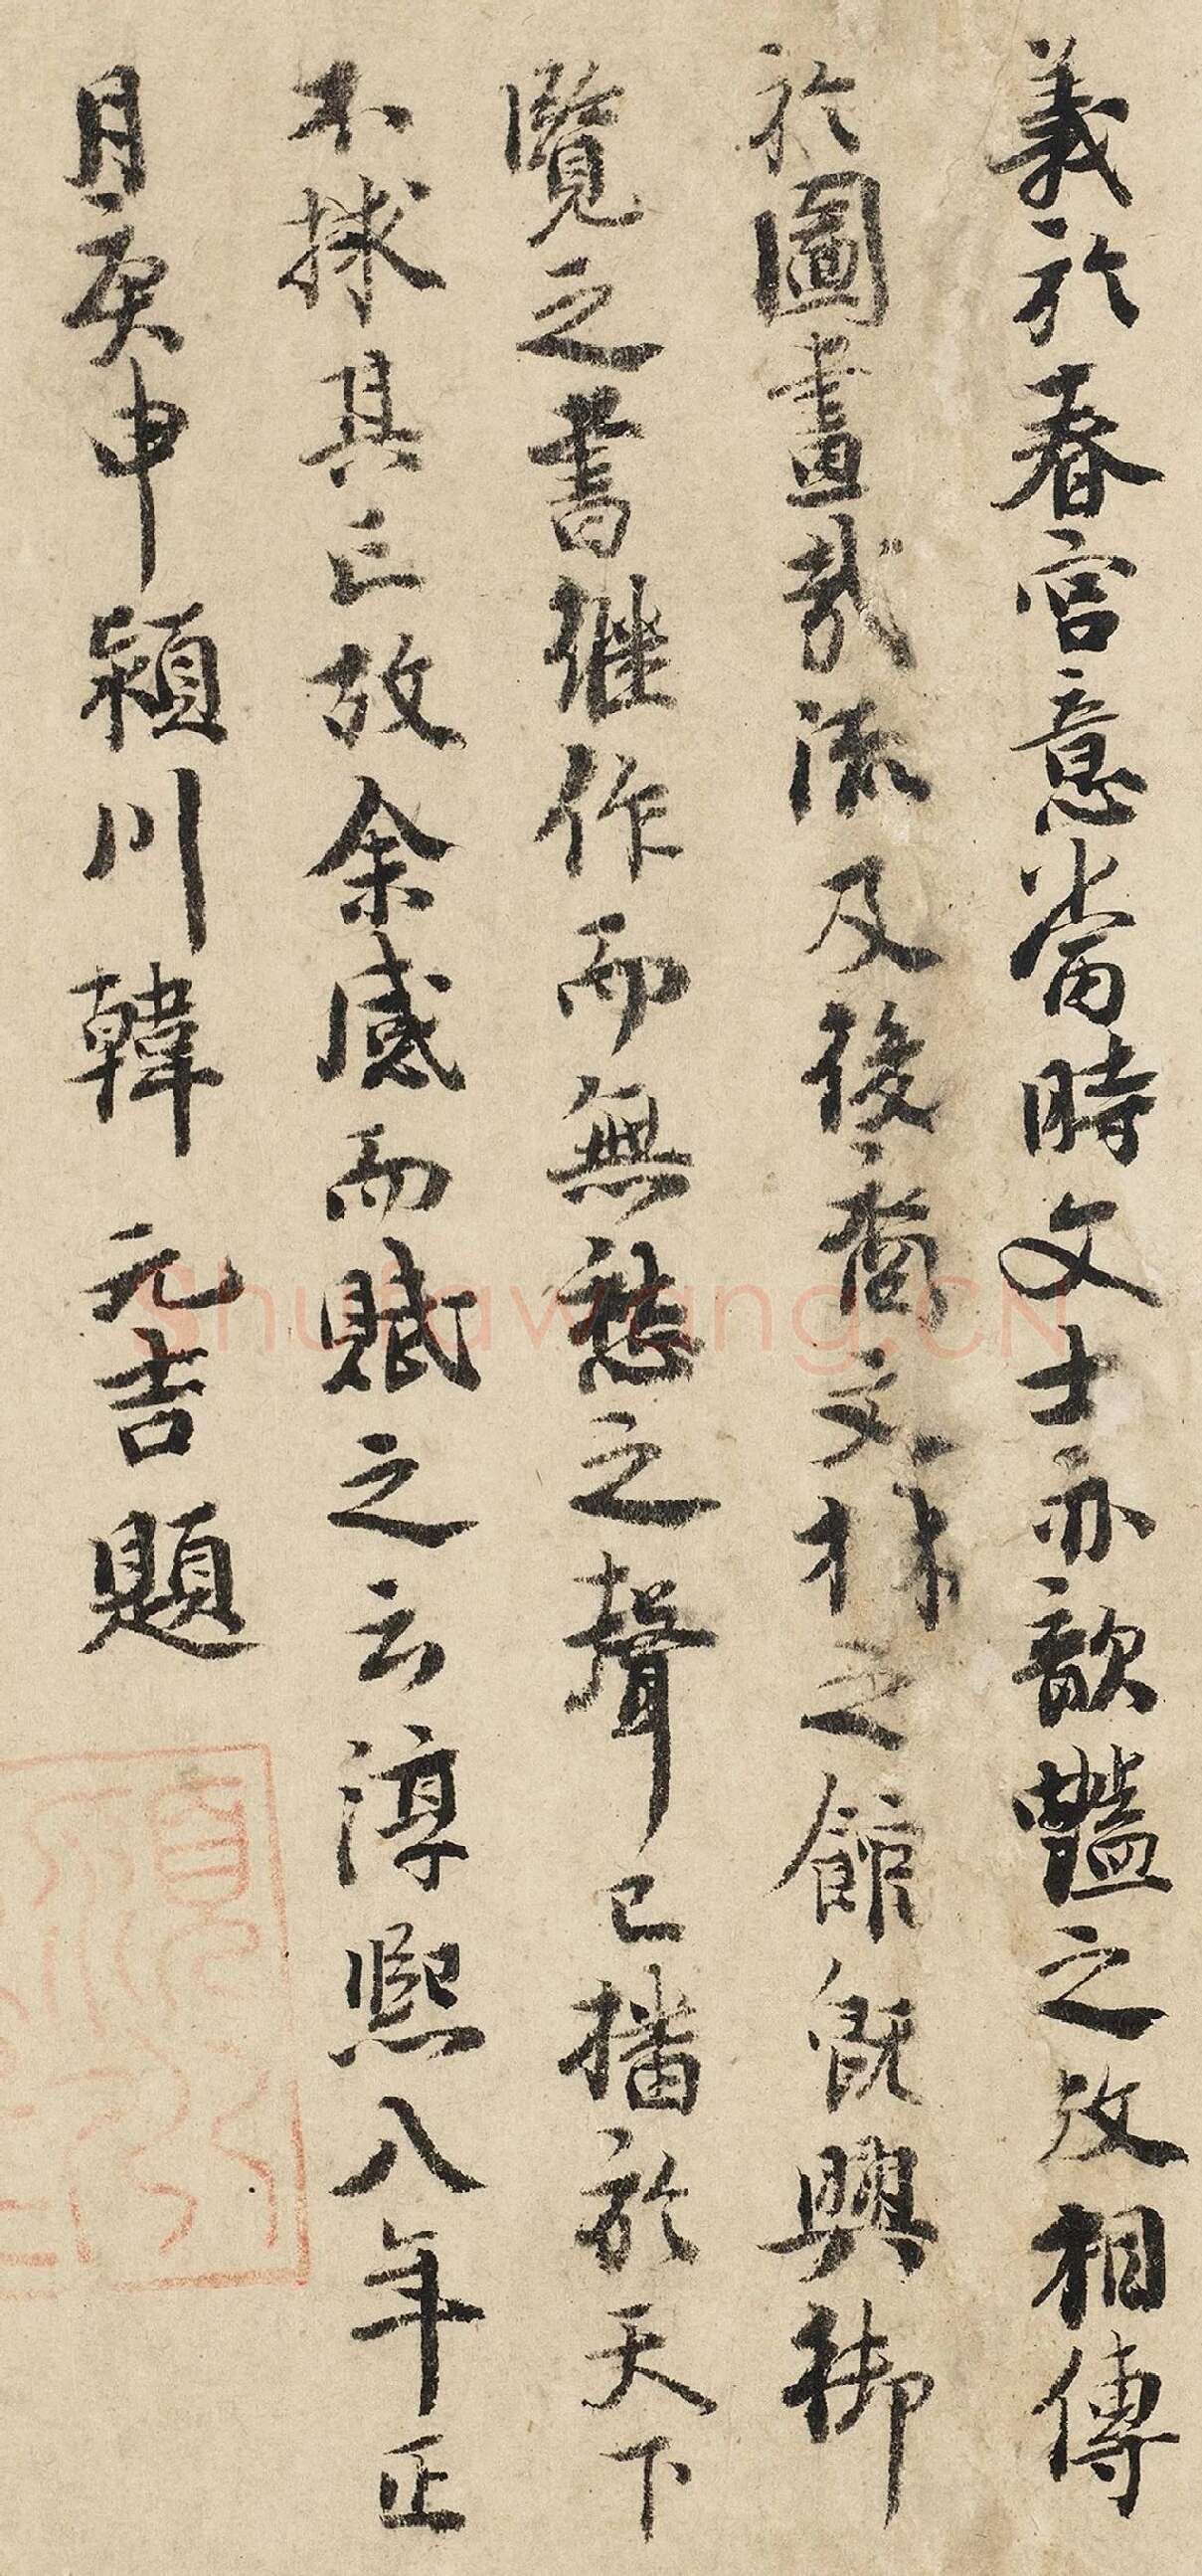 義於春宮意當時文士亦歆豔之故相傳
於圖畫哉流及後裔文林之館既興御
覽之書継作而無愁之聲已播於天下
不捄其亡故余感而賦之云淳熙八年正
月庚申潁川韓元吉題
shufawang.CN